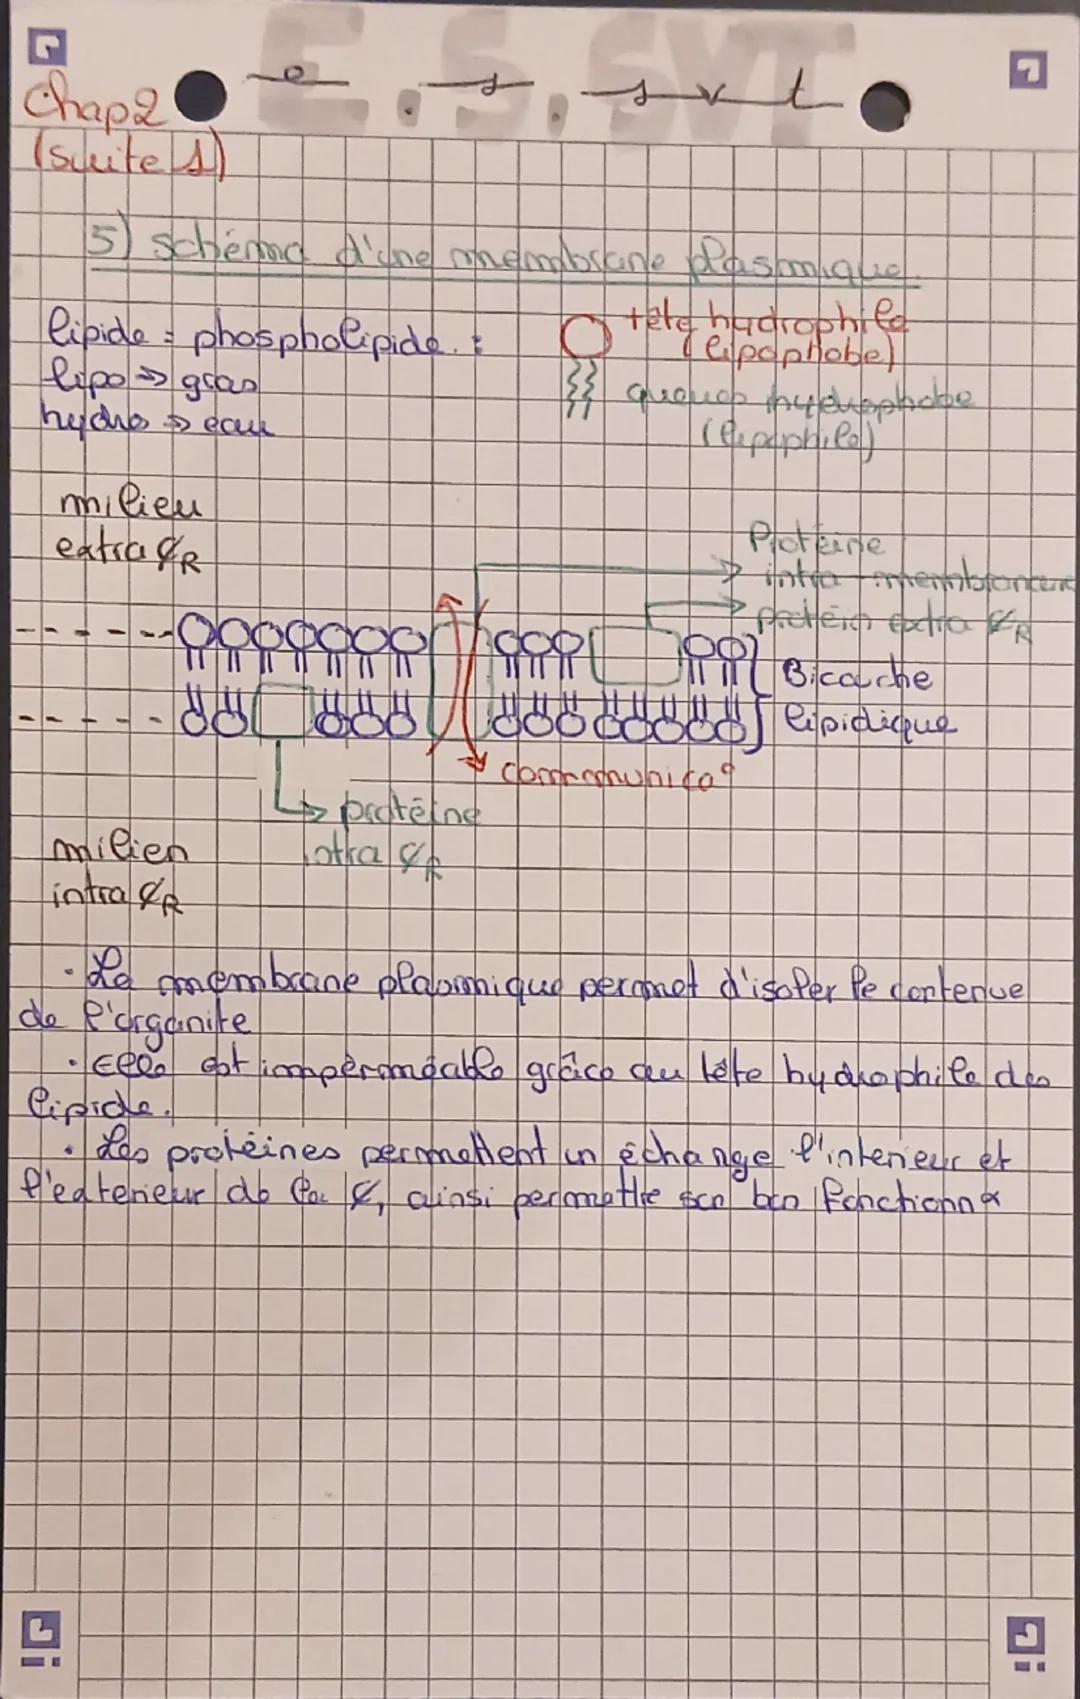 E.S.SVT
e . s . s v t
Chap2
(suite 1)
5) schéma d'une membrane plasmique.
lipide = phospholipide. :
lipo => gras
hydro => eau
tête hydrophile
(lipophobe)
queues hydrophobe
(lipophile)
milieu
extra ȻR
Protéine
intra-membranaire
protéin extra ȻR
Bicouche
lipidique
communica°
protéine
intra ȻR
milieu
intra ȻR
. La membrane plasmique permet d'isoler le contenue
de l'organite
. Elle est imperméable grâce au tête hydrophile des
lipide.
. Les protéines permettent un échange l'interieur et
l'exterieur de la Ȼ, ainsi permettre son bon fonctionn